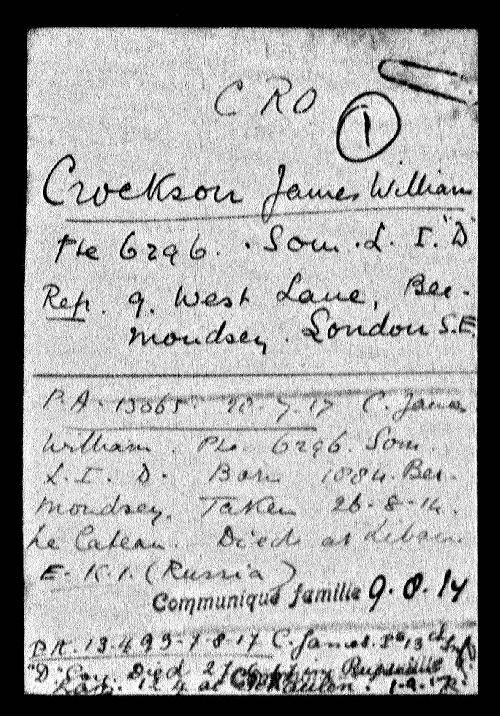 CRO
1
Crockson James William
Pte 6296. Som. L. I. "D"
Rep. 9. West Lane, Ber-
mondsey. London S.E.
P.A. 13065. 20-7-17 C. James
William. Pte. 6296. Som.
L. I. D. Born 1884. Ber-
mondsey. Taken 26-8-14.
Le Cateau. Died at Libau.
E. K. 1. (Russia)
Communiqué famille 9.8.17
P.A. 13.495-7-8-17 C. James.
"D" Coy. Died
at